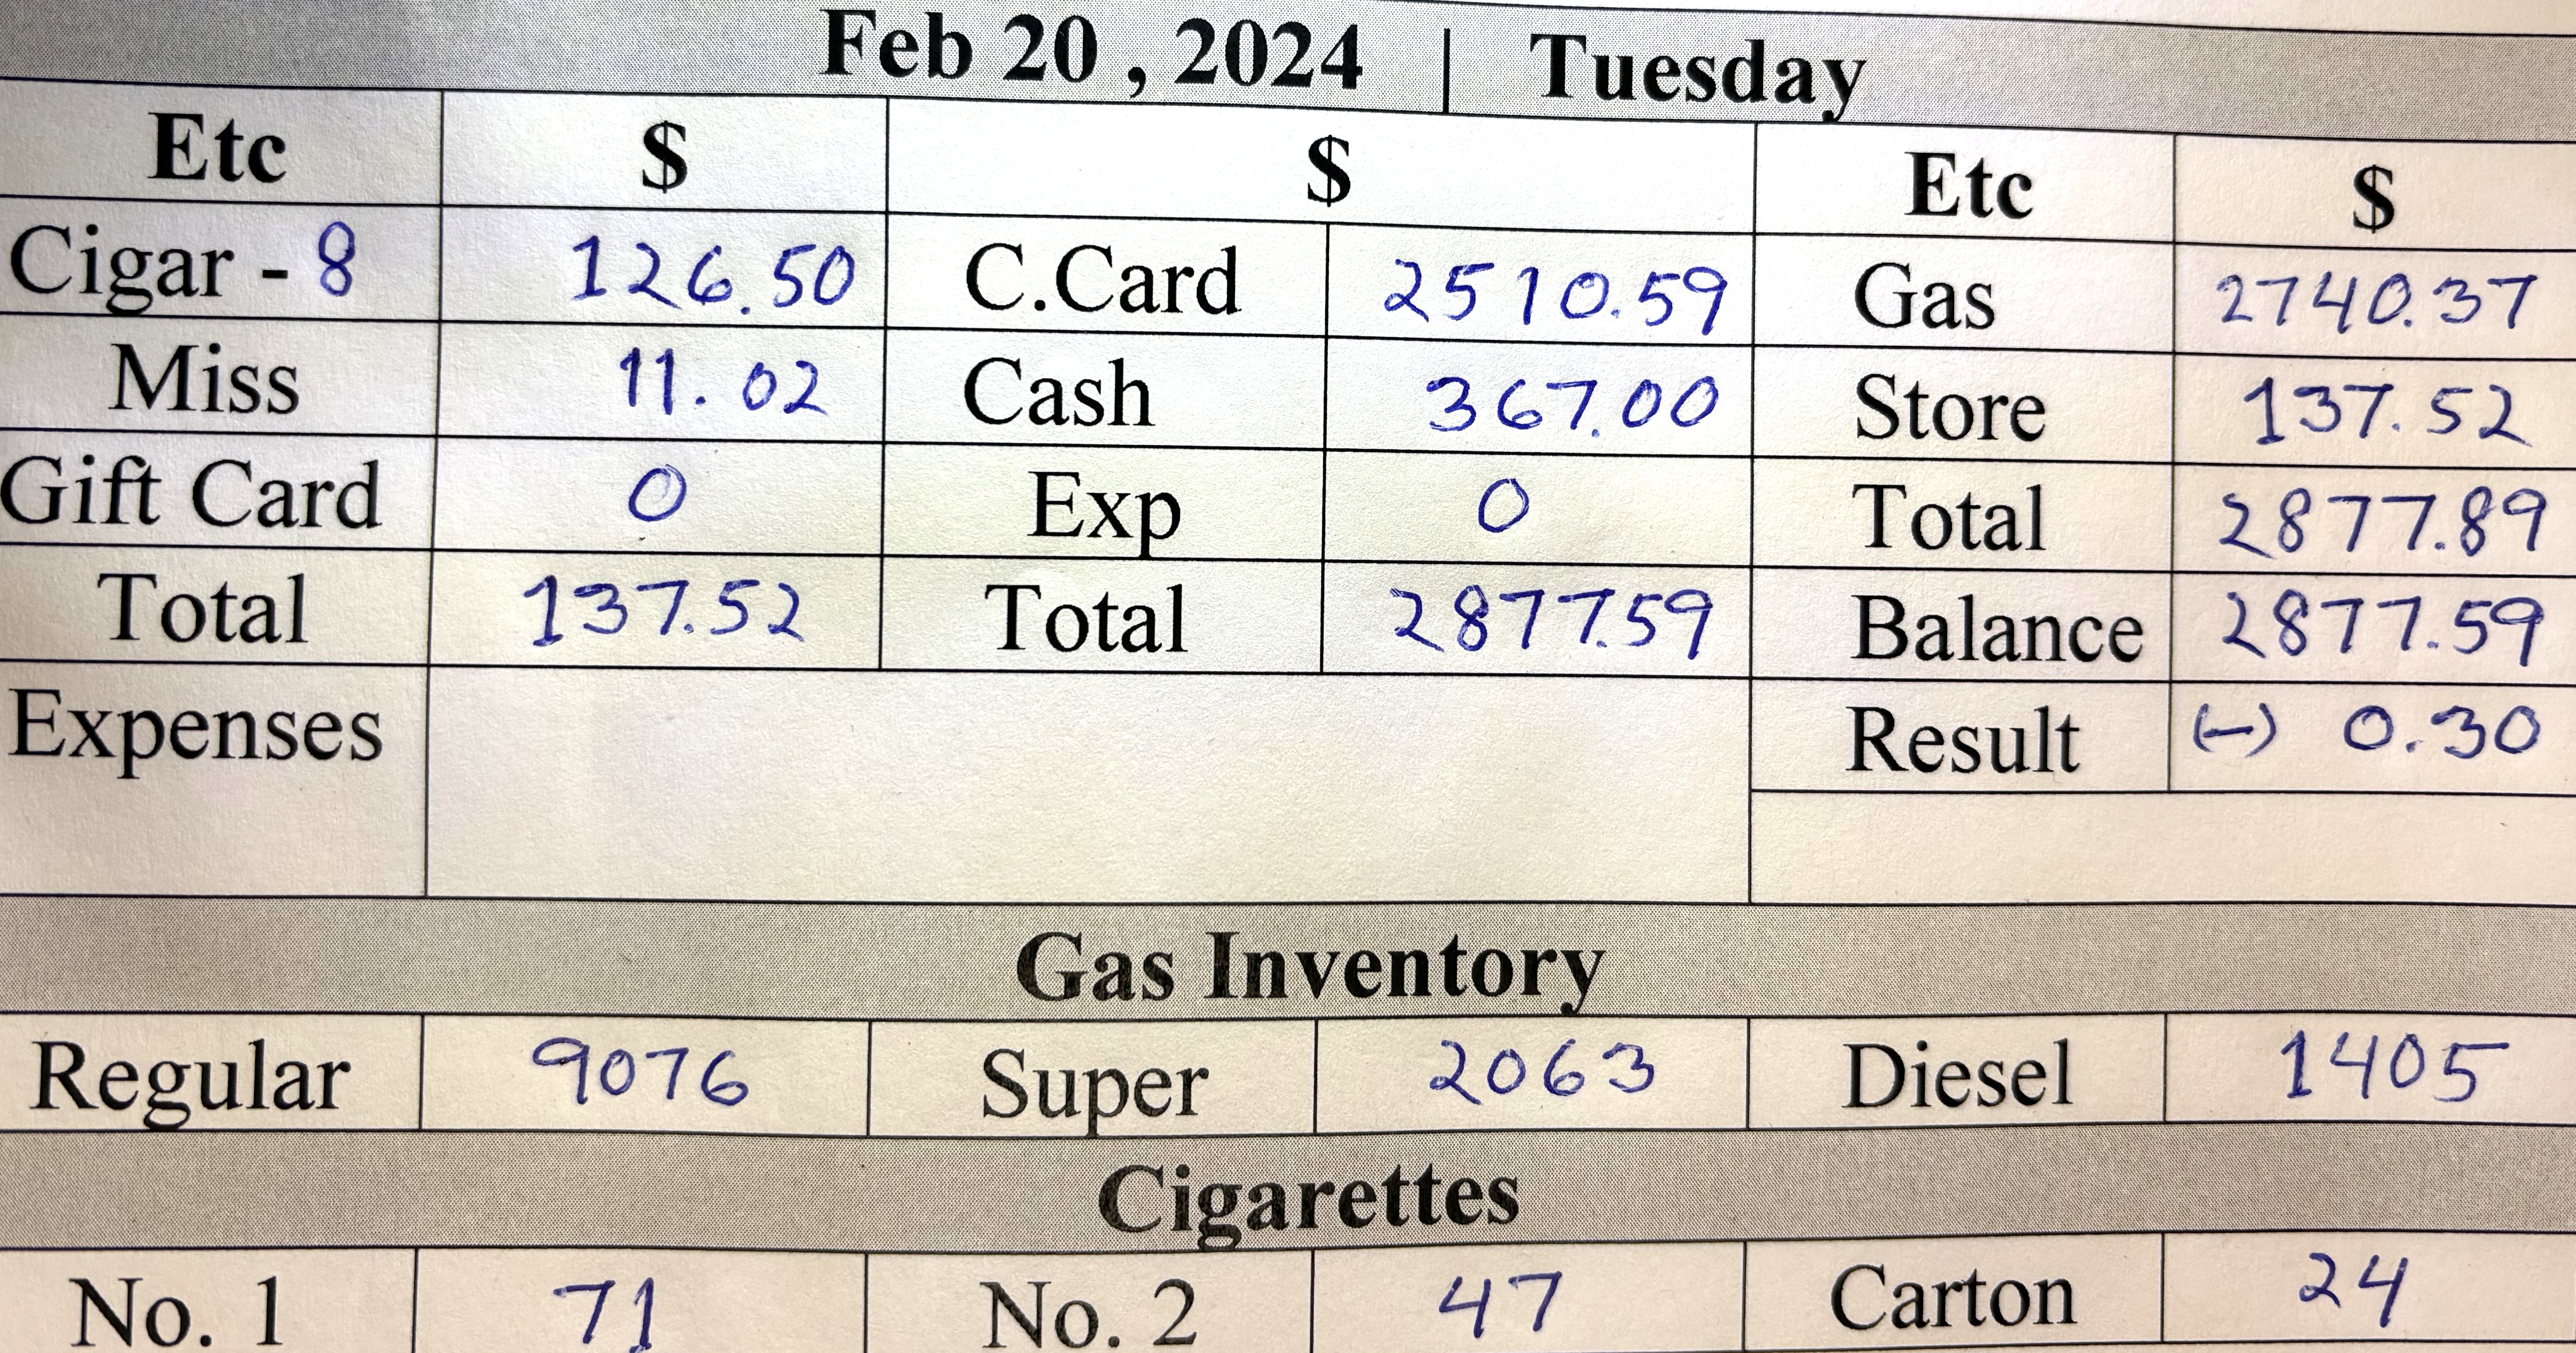 Feb 20 , 2024 | Tuesday
Etc $ $ Etc $
Cigar - 8 126.50 C.Card 2510.59 Gas 2740.37
Miss 11.02 Cash 367.00 Store 137.52
Gift Card 0 Exp 0 Total 2877.89
Total 137.52 Total 2877.59 Balance 2877.59
Expenses Result (-) 0.30
Gas Inventory
Regular 9076 Super 2063 Diesel 1405
Cigarettes
No. 1 71 No. 2 47 Carton 24